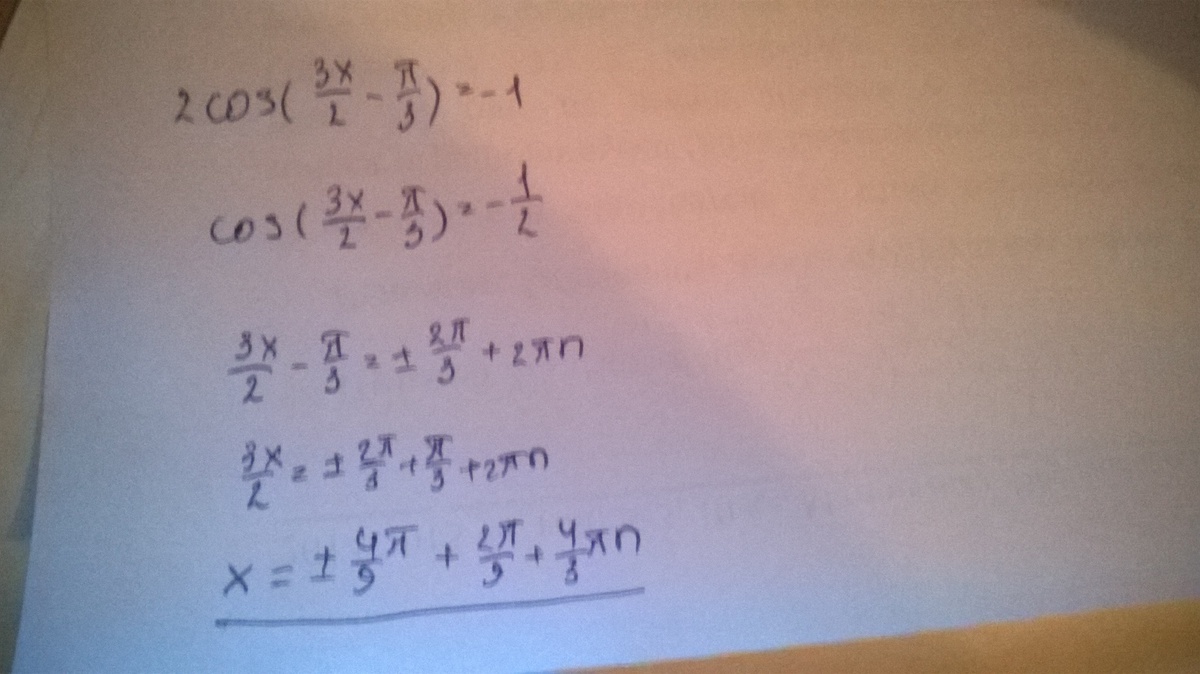 2cos(3x/2 - π/3) = -1
cos(3x/2 - π/3) = -1/2
3x/2 - π/3 = ± 2π/3 + 2πn
3x/2 = ± 2π/3 + π/3 + 2πn
x = ± 4/9 π + 2π/9 + 4/3 πn